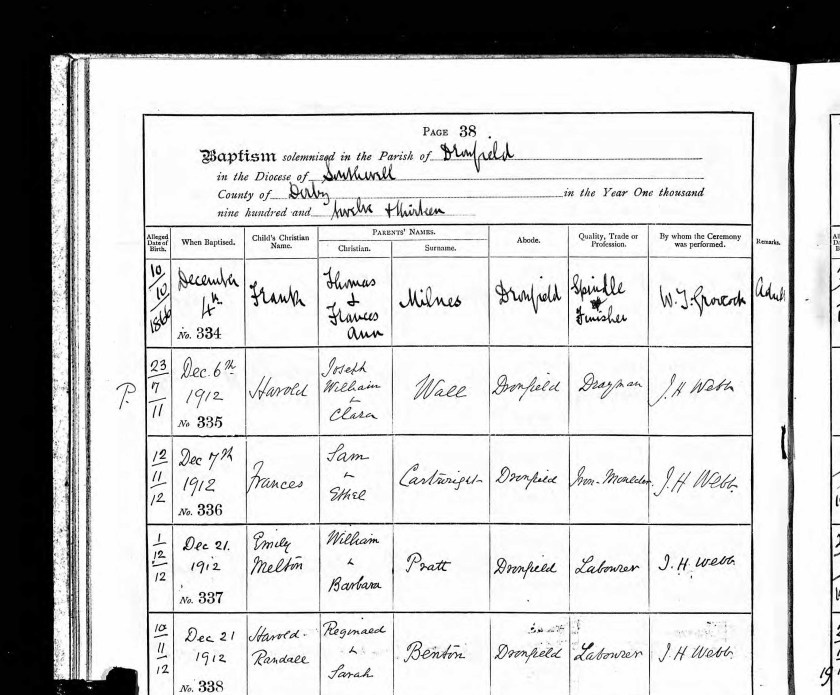 PAGE 38
Baptism solemnized in the Parish of Dronfield
in the Diocese of Southwell
County of Derby in the Year One thousand
nine hundred and twelve & thirteen
Alleged Date of Birth. When Baptised. Child's Christian Name. PARENTS' NAMES. Christian. Surname. Abode. Quality, Trade or Profession. By whom the Ceremony was performed. Remarks.
10/10/1866 December 4th No. 334 Frank Thomas & Frances Ann Milnes Dronfield Spindle Finisher W. T. Grocock Adult
P. 23/7/11 Dec. 6th 1912 No 335 Harold Joseph William & Clara Wall Dronfield Drayman J. H Webb
12/11/12 Dec 7th 1912 No. 336 Frances Sam & Ethel Cartwright Dronfield Iron-Moulder J. H Webb.
1/12/12 Dec 21. 1912 No. 337 Emily Melton William & Barbara Pratt Dronfield Labourer J. H. Webb
10/11/12 Dec 21 1912 No. 338 Harold Randall Reginald & Sarah Benton Dronfield Labourer J. H Webb.